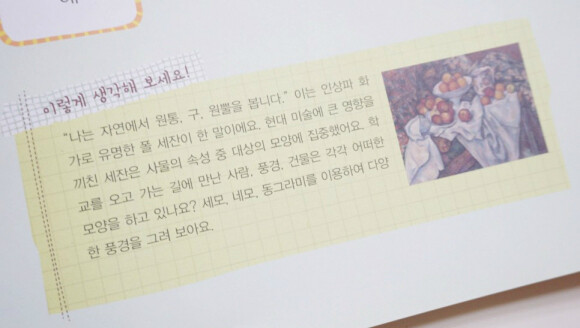 이렇게 생각해 보세요!
“나는 자연에서 원통, 구, 원뿔을 봅니다.” 이는 인상파 화
가로 유명한 폴 세잔이 한 말이에요. 현대 미술에 큰 영향을
끼친 세잔은 사물의 속성 중 대상의 모양에 집중했어요. 학
교를 오고 가는 길에 만난 사람, 풍경, 건물은 각각 어떠한
모양을 하고 있나요? 세모, 네모, 동그라미를 이용하여 다양
한 풍경을 그려 보아요.